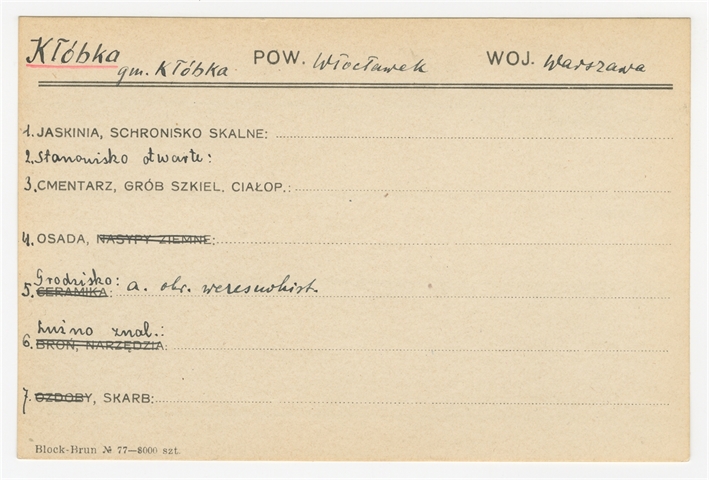 Kłóbka POW. Włocławek WOJ. Warszawa
gm. Kłóbka
1. JASKINIA, SCHRONISKO SKALNE:
2. Stanowisko otwarte:
3. CMENTARZ, GRÓB SZKIEL. CIAŁOP.:
4. OSADA, NASYPY ZIEMNE:
Grodzisko: a. okr. wczesnohist.
5. CERAMIKA:
Luźno znal.:
6. BROŃ, NARZĘDZIA:
7. OZDOBY, SKARB:
Block-Brun № 77—8000 szt.